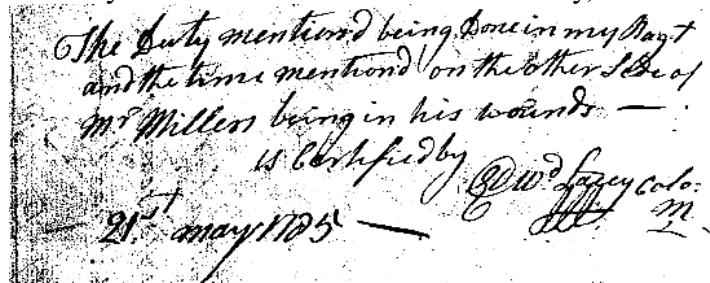 The Duty mention'd being Done in my Regt
and the time mention'd on the other Side of
Mr Millers being in his wounds —
is Certified by
Edwd Lacey Colo:
M
— 21st may 1785 —